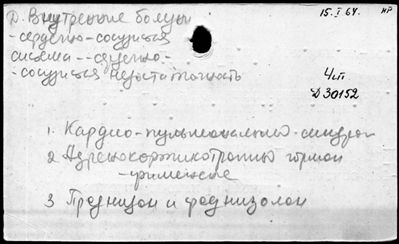 Д. Внутренние болезни
15.I 64. НР
-сердечно-сосудистая
система -- сердечно-
-сосудистая недостаточность
4 ил
Д30152
1. Кардио-пульмональный синдром
2 Адренокортикотропный гормон
-применение
3 Преднизон и преднизолон